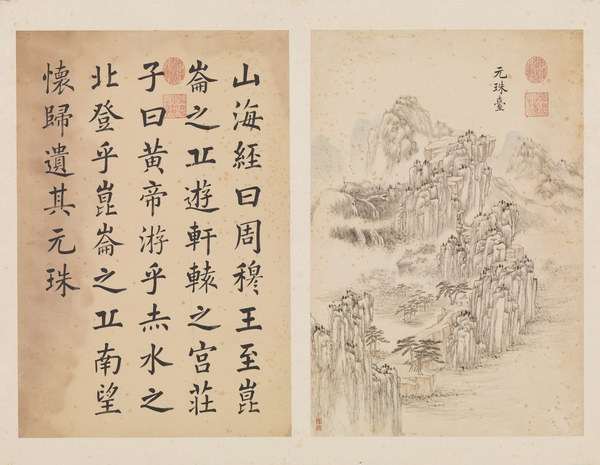 元珠臺
山海經曰周穆王至崑
崙之丘遊軒轅之宮莊
子曰黃帝游乎赤水之
北登乎崑崙之丘南望
懷歸遺其元珠